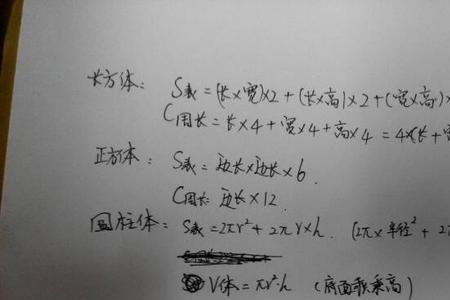 长方体: S表 = (长×宽)×2 + (长×高)×2 + (宽×高)×
C周长 = 长×4 + 宽×4 + 高×4 = 4×(长+宽
正方体: S表 = 边长×边长×6.
C周长: 边长×12.
圆柱体: S表 = 2πr²+2πr×h. (2π×半径²+2
V体 = πr²·h (底面积乘高)